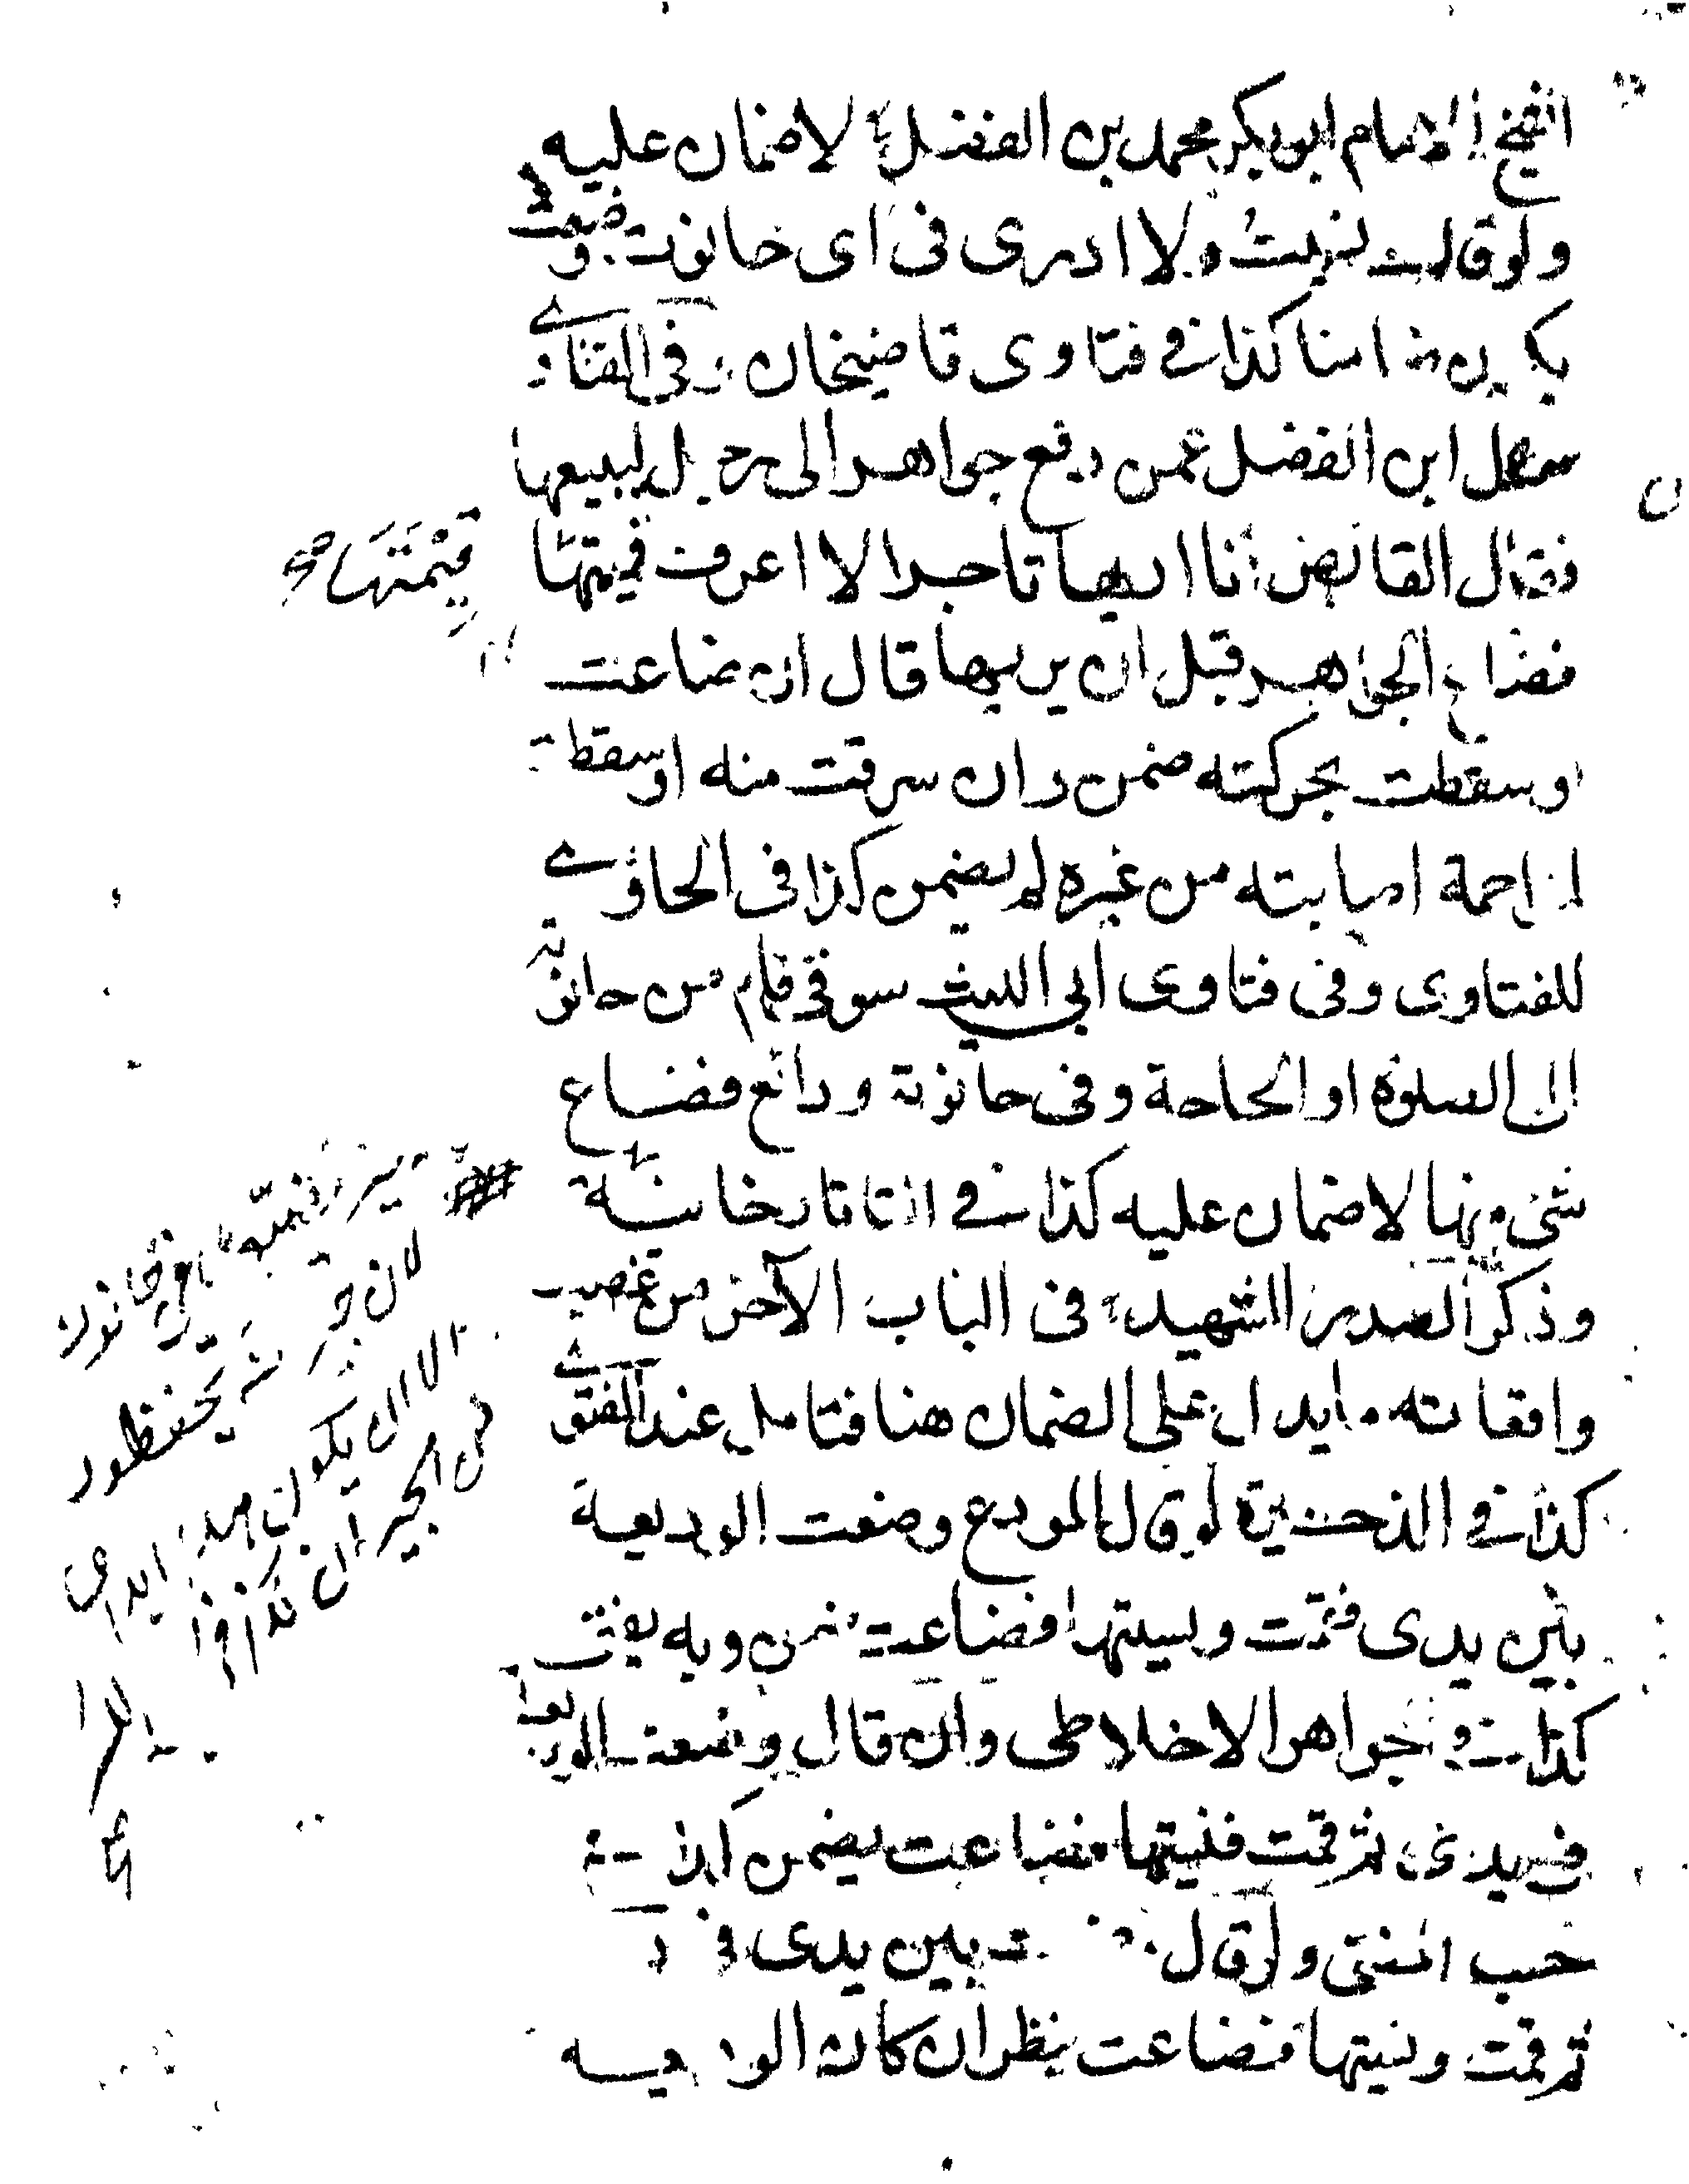 الشيخ الامام ابو بكر محمد بن الفضل لا ضمان عليه
ولو قال نسيت ولا ادرى فى اى حانوت وضعت
يكون ضامنا كذا فى فتاوى قاضيخان وفى الفتاوى
سئل ابن الفضل عمن دفع جواهر الى رجل ليبيعها
فقال القابض انا اريها تاجرا لا اعرف قيمتها
قيمتها صح
فضاع الجواهر قبل ان يريها قال ان ضاعت
او سقطت بحركته ضمن وان سرقت منه او سقطت
لمزاحمة اصابته من غيره لم يضمن كذا فى الحاوى
للفتاوى وفى فتاوى ابى الليث سوقى قام من حانوته
الى الصلوة او الحاجة وفى حانوته ودائع فضاع
شئ منها لا ضمان عليه كذا فى التاتارخانية
وذكر الصدر الشهيد فى الباب الآخر من غصب
واقعاته ما يدل على الضمان هنا فتامل عند الفتوى
كذا فى الذخيرة لو قال المودع وضعت الوديعة
بين يدى فقمت ونسيتها فضاعت ضمن وبه يفتى
كذا فى جواهر الاخلاطى وان قال وضعت الوديعة
فى يدى ثم قمت فنسيتها فضاعت يضمن
ولو قال بين يدى فى
ثم قمت ونسيتها فضاعت ينظر ان كانت الوديعة
لان جيرانه يحفظون
الا ان يكون هذا ايداع
من الجيران